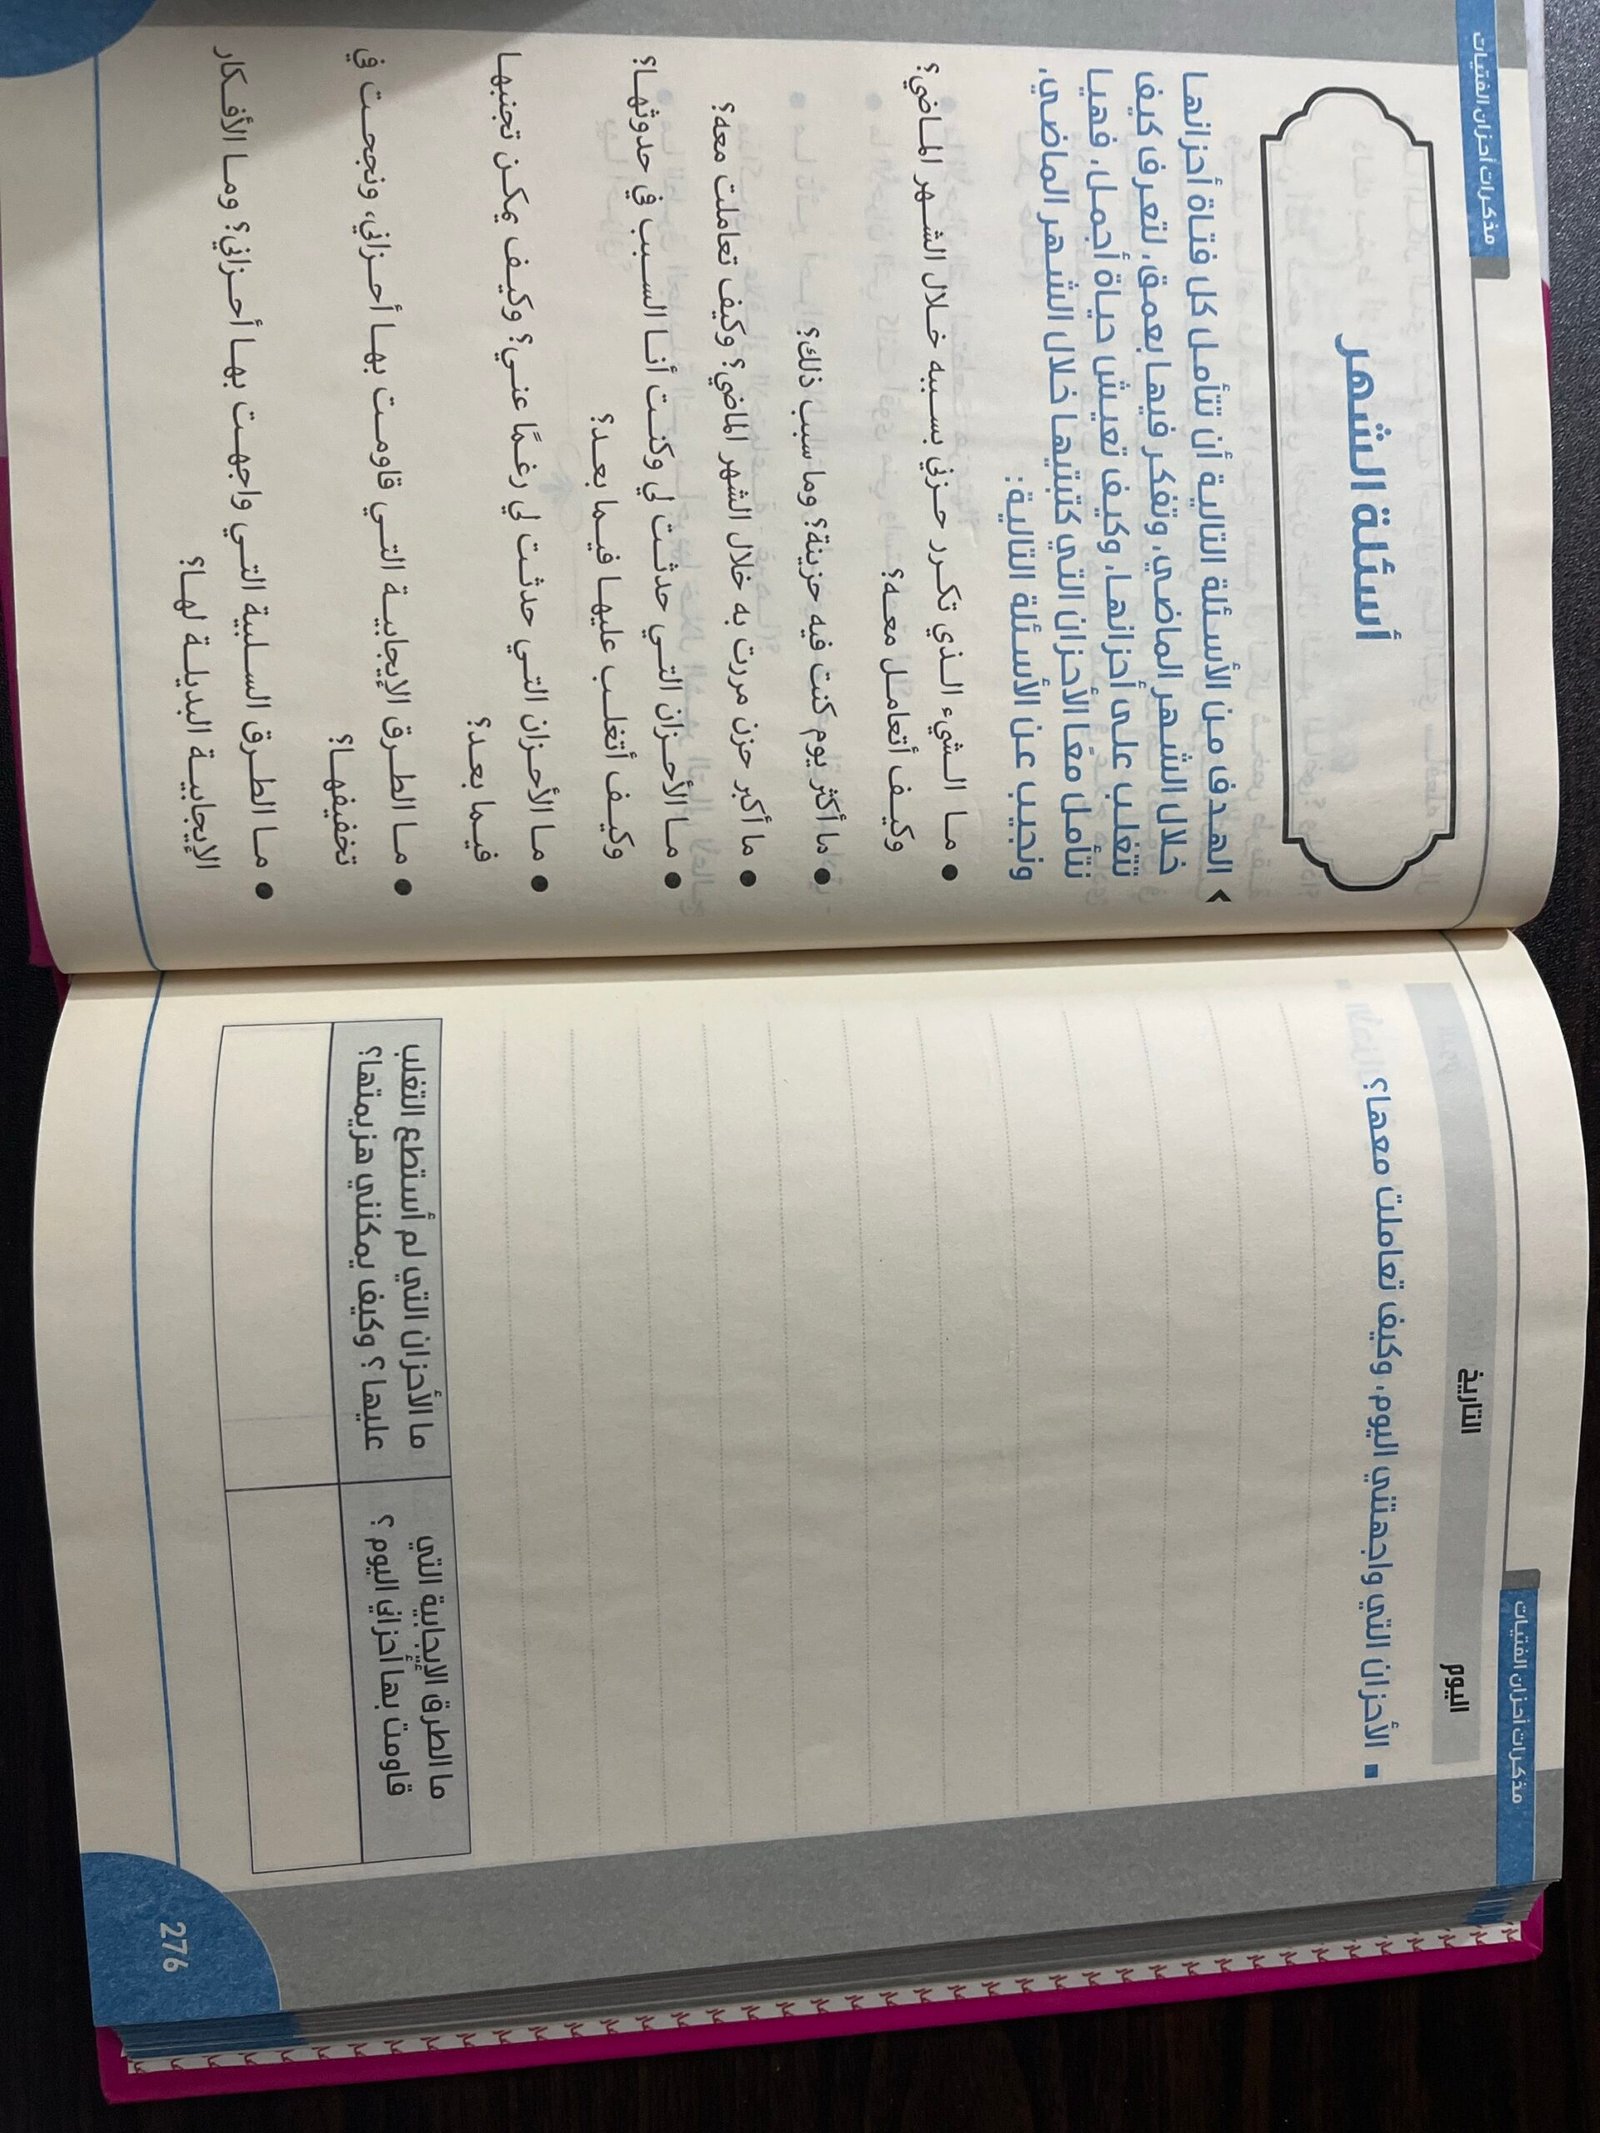 مذكرات أحزان الفتيات
اليوم
التاريخ
الأحزان التي واجهتني اليوم، وكيف تعاملت معها؟
ما الطرق الإيجابية التي
قاومت بها أحزاني اليوم ؟
ما الأحزان التي لم أستطع التغلب
عليها ؟ وكيف يمكنني هزيمتها؟
276
مذكرات أحزان الفتيات
أسئلة الشهر
الهدف من الأسئلة التالية أن تتأمل كل فتاة أحزانها
خلال الشهر الماضي، وتفكر فيها بعمق، لتعرف كيف
تتغلب على أحزانها، وكيف تعيش حياة أجمل، فهيا
نتأمل معًا الأحزان التي كتبتيها خلال الشهر الماضي،
ونجيب عن الأسئلة التالية:
• ما الشيء الذي تكرر حزني بسببه خلال الشهر الماضي؟
وكيف أتعامل معه؟
• ما أكثر يوم كنت فيه حزينة؟ وما سبب ذلك؟
• ما أكبر حزن مررت به خلال الشهر الماضي؟ وكيف تعاملت معه؟
• ما الأحزان التي حدثت لي وكنت أنا السبب في حدوثها؟
وكيف أتغلب عليها فيما بعد؟
• ما الأحزان التي حدثت لي رغمًا عني؟ وكيف يمكن تجنبها
فيما بعد؟
• ما الطرق الإيجابية التي قاومت بها أحزاني، ونجحت في
تخفيفها؟
• ما الطرق السلبية التي واجهت بها أحزاني؟ وما الأفكار
الإيجابية البديلة لها؟